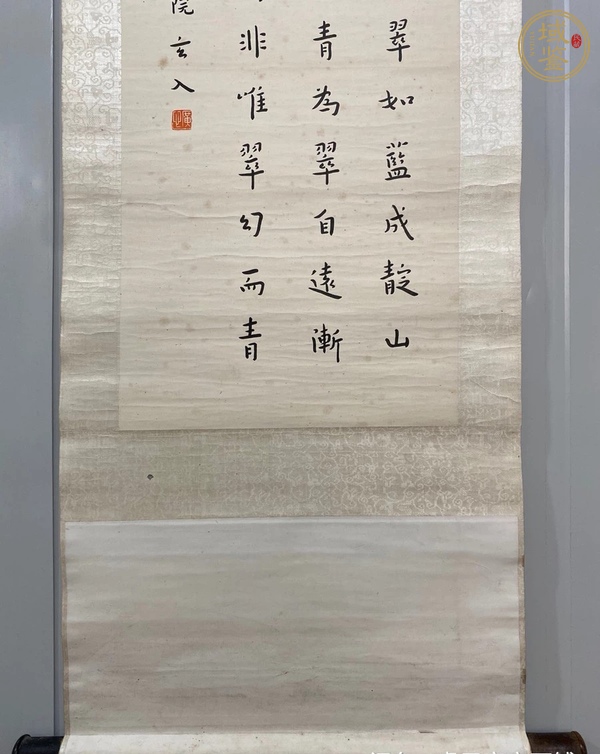 翠如藍成靛山
青為翠自遠漸
非唯翠幻而青
院玄入